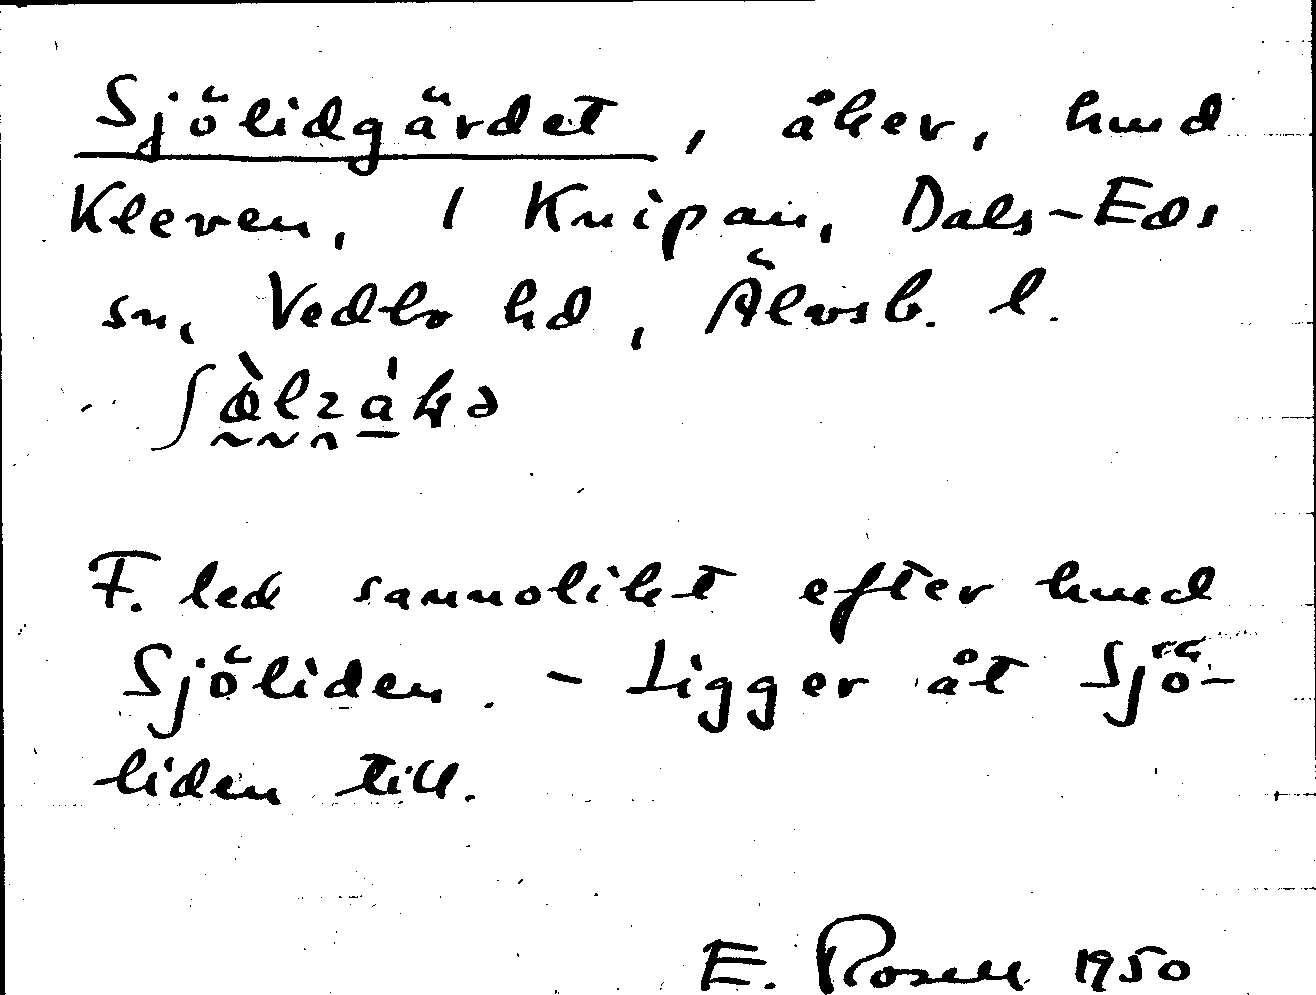 Sjölidgärdet, åker, hmd
Kleven, 1 Knipan, Dals-Eds
sn, Vedbo hd, Älvsb. l.
F. led sannolikt efter hmd
Sjöliden. - Ligger åt Sjö-
liden till.
E. Rosell 1950